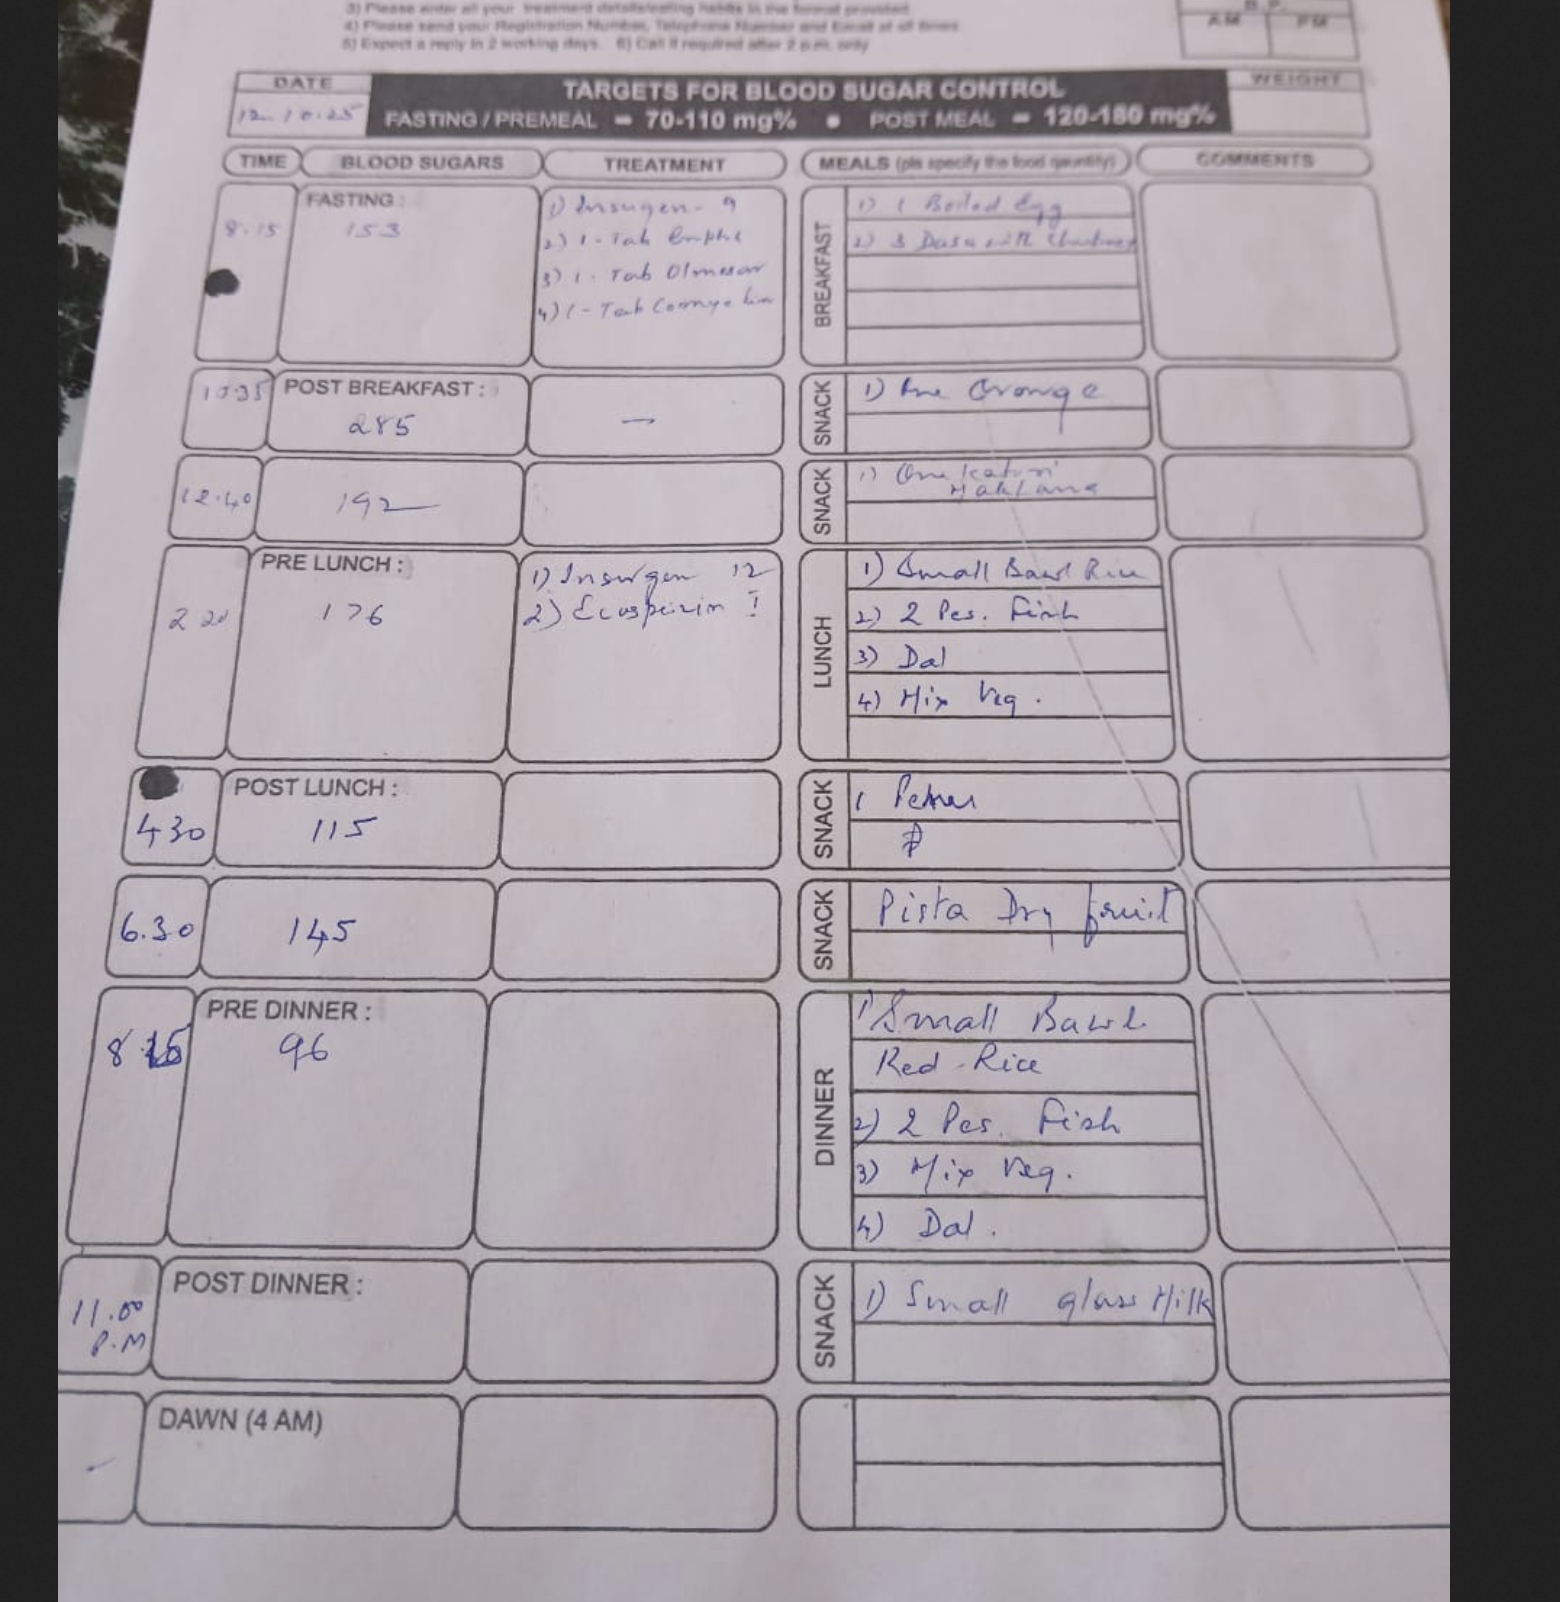 3) Please enter all your treatment details/eating habits in the format provided.
4) Please send your Registration Number, Telephone Number and Email at all times
5) Expect a reply in 2 working days. 6) Call if required after 2 p.m. only
B.P.
AM PM
DATE
12.10.25
TARGETS FOR BLOOD SUGAR CONTROL
FASTING / PREMEAL = 70-110 mg% • POST MEAL = 120-180 mg%
WEIGHT
TIME BLOOD SUGARS TREATMENT MEALS (pls specify the food qauntity) COMMENTS
8.15
FASTING :
153
1) Insugen - 9
2) 1 - Tab
3) 1 - Tab Olmesar
4) 1 - Tab
BREAKFAST
1) 1 Boiled Egg
2) 3 Dasa with
10.35
POST BREAKFAST :
285
—
SNACK
1) One Orange
12.40
192
SNACK
1) One Katori
Makhana
2 20
PRE LUNCH :
176
1) Insurgen 12
2) Ecospirin I
LUNCH
1) Small Bawl Rice
2) 2 Pes. Fish
3) Dal
4) Mix Veg.
4 30
POST LUNCH :
115
SNACK
1
6.30
145
SNACK
Pista Dry fruit
8
PRE DINNER :
96
DINNER
1) Small Bawl
Red Rice
2) 2 Pes. Fish
3) Mix Veg.
4) Dal.
11.00
P.M
POST DINNER :
SNACK
1) Small glass Milk
DAWN (4 AM)